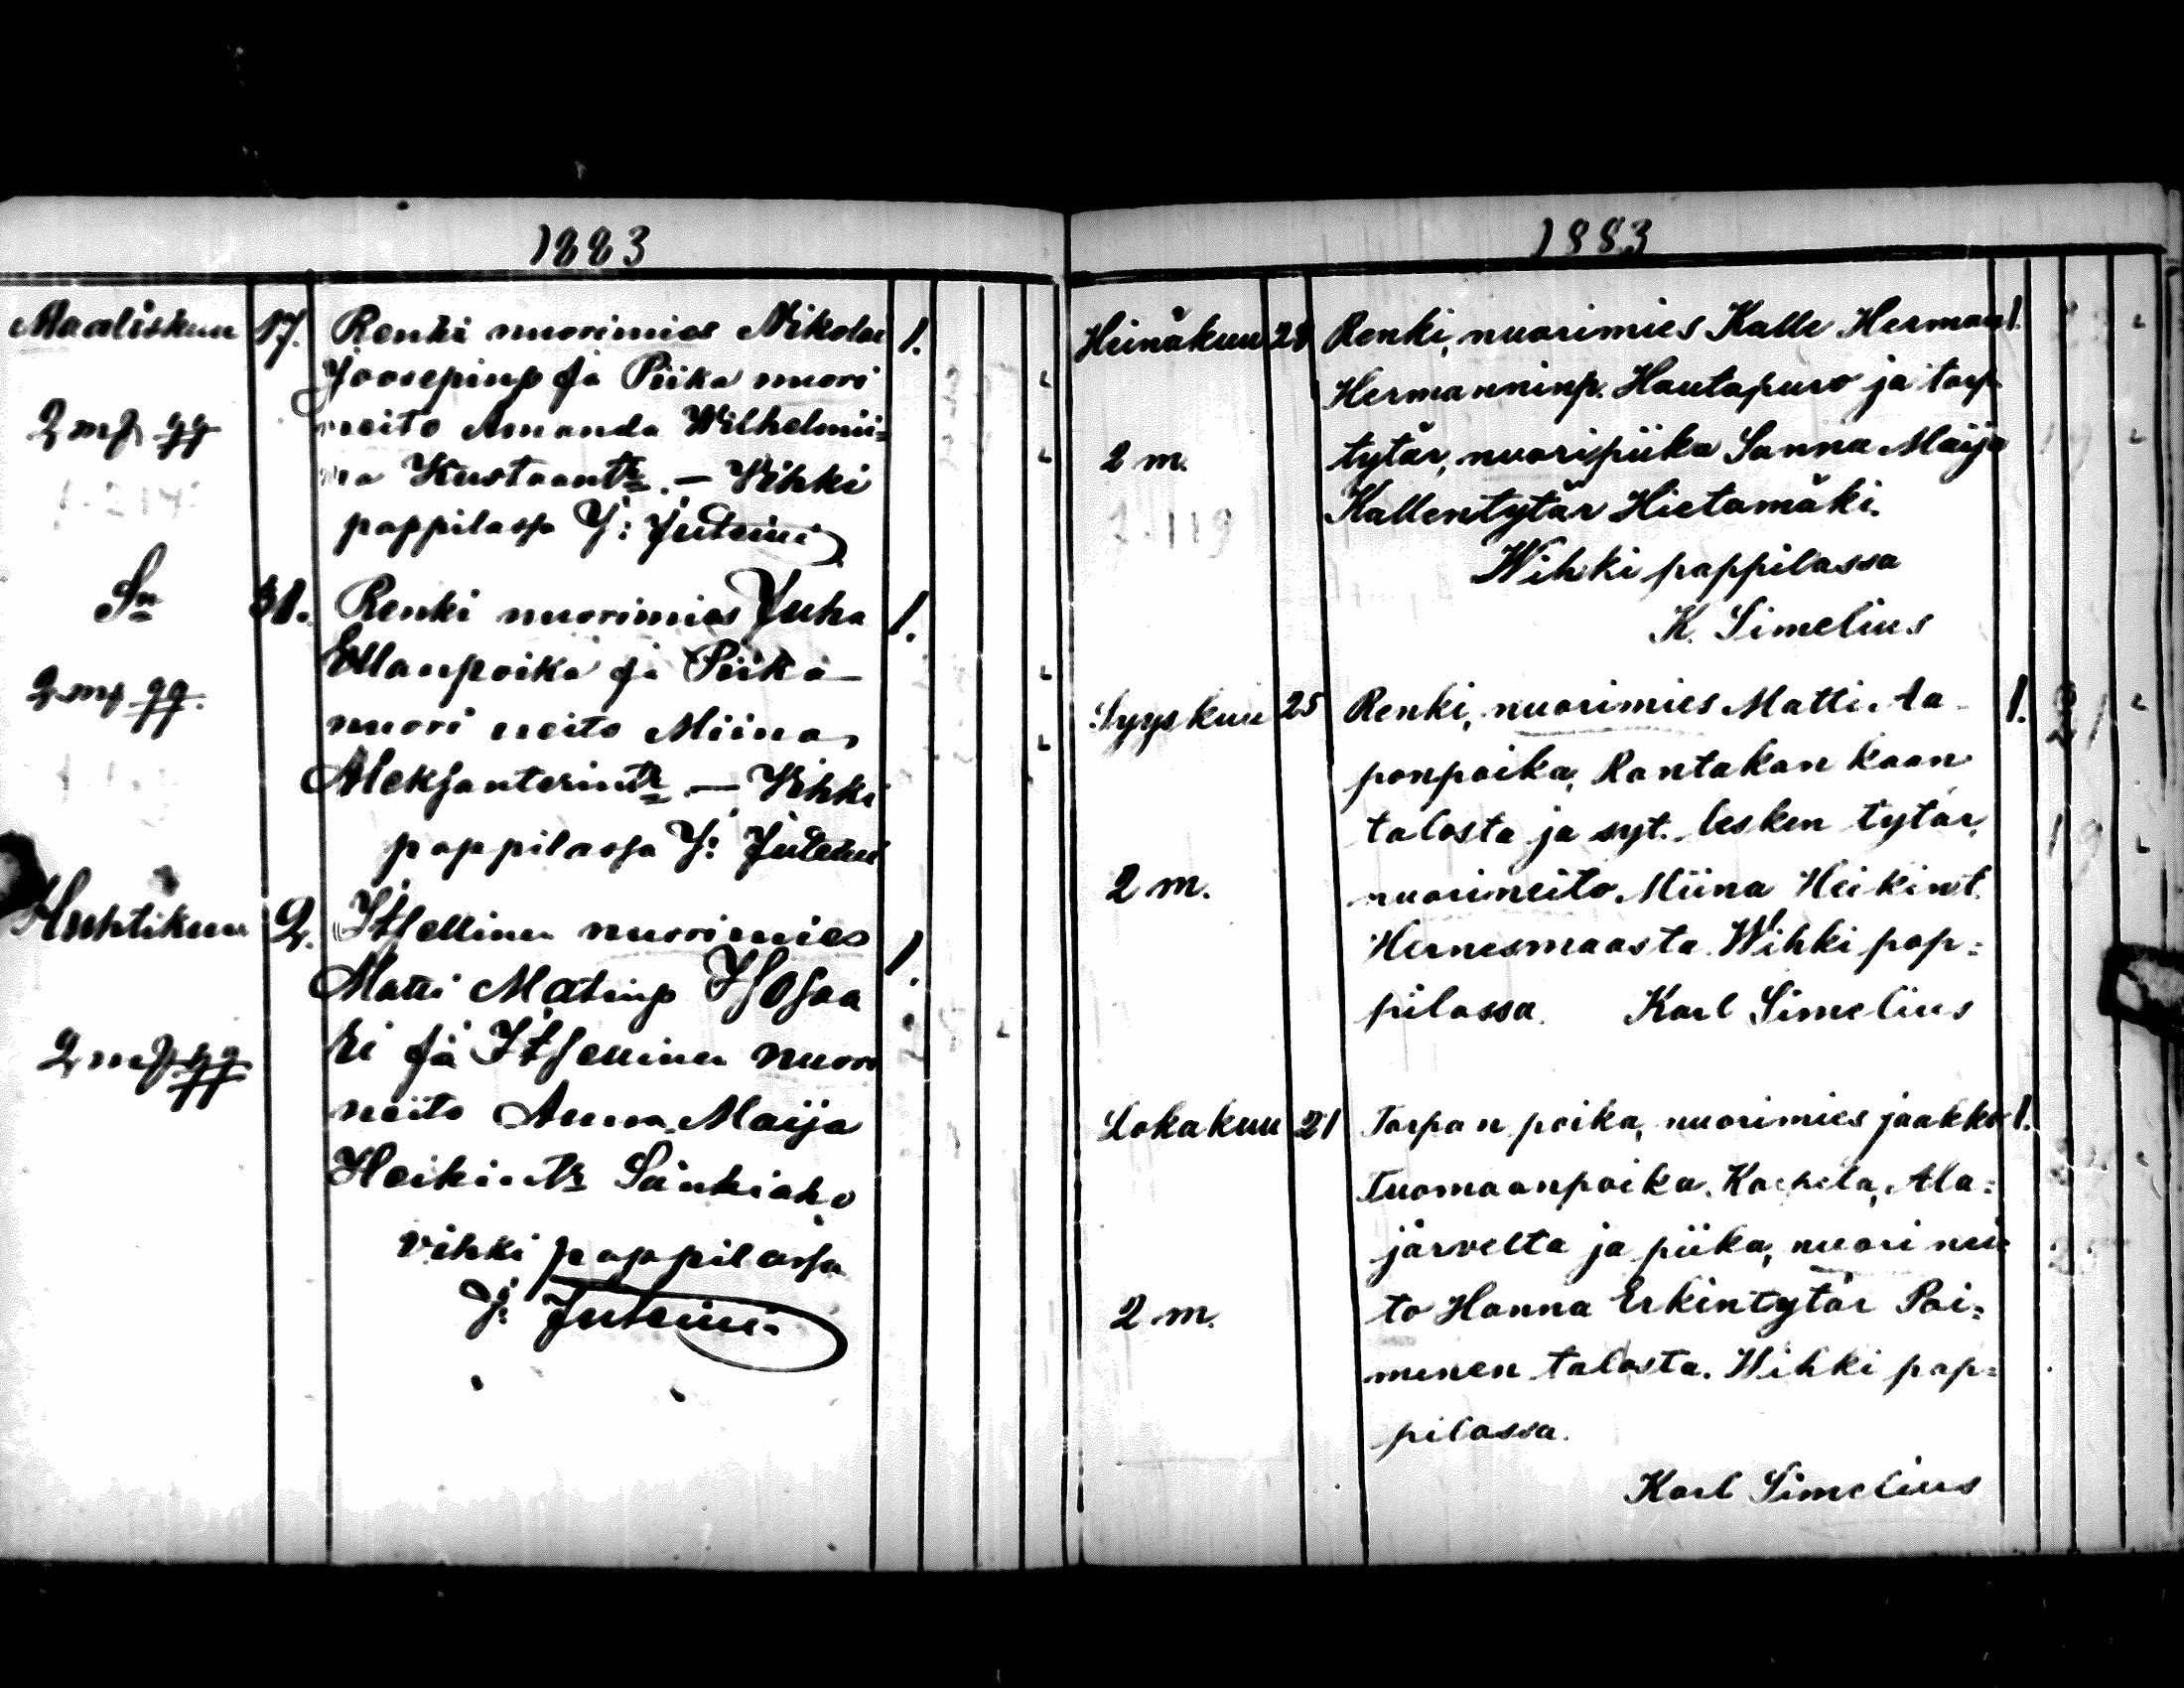 1883
Maaliskuu 17. Renki nuorimies Nikolai 1.
Joosepinp ja Piika nuori
2 mk neito Amanda Wilhelmii=
na Kustaantr. — Vihki
pappilassa J: Juteini
Sn 31. Renki nuorimies Juha 1.
Ellanpoika ja Piika
2 mk nuori neito Miina
Aleksanterintr — Vihki
pappilassa J: Juteini
Huhtikuu 2. Itsellinen nuorimies 1.
Matti Matinp Isosaa
2 mk ri ja Itsellinen nuori
neito Anna Maija
Heikintr Sänkiaho
vihki pappilassa
J: Juteini
1883
Heinäkuu 28 Renki, nuorimies Kalle Herman 1.
Hermanninp. Hautapuro ja torp
2 m. tytär, nuoripiika Sanna Maija
Kallentytär Hietamäki.
Wihki pappilassa
K. Simelius
Syyskuu 25 Renki, nuorimies Matti Aa 1.
ponpoika, Rantakan kaan
talosta ja syt. lesken tytär,
2 m. nuorineito Miina Heikint.
Hernesmaasta. Wihki pap=
pilassa. Karl Simelius
Lokakuu 21 Torpan poika, nuorimies jaakko 1.
Tuomaanpoika, Ala=
järveltä ja piika, nuori nei
2 m. to Hanna Erkintytär Poi=
munen talosta. Wihki pap=
pilassa.
Karl Simelius